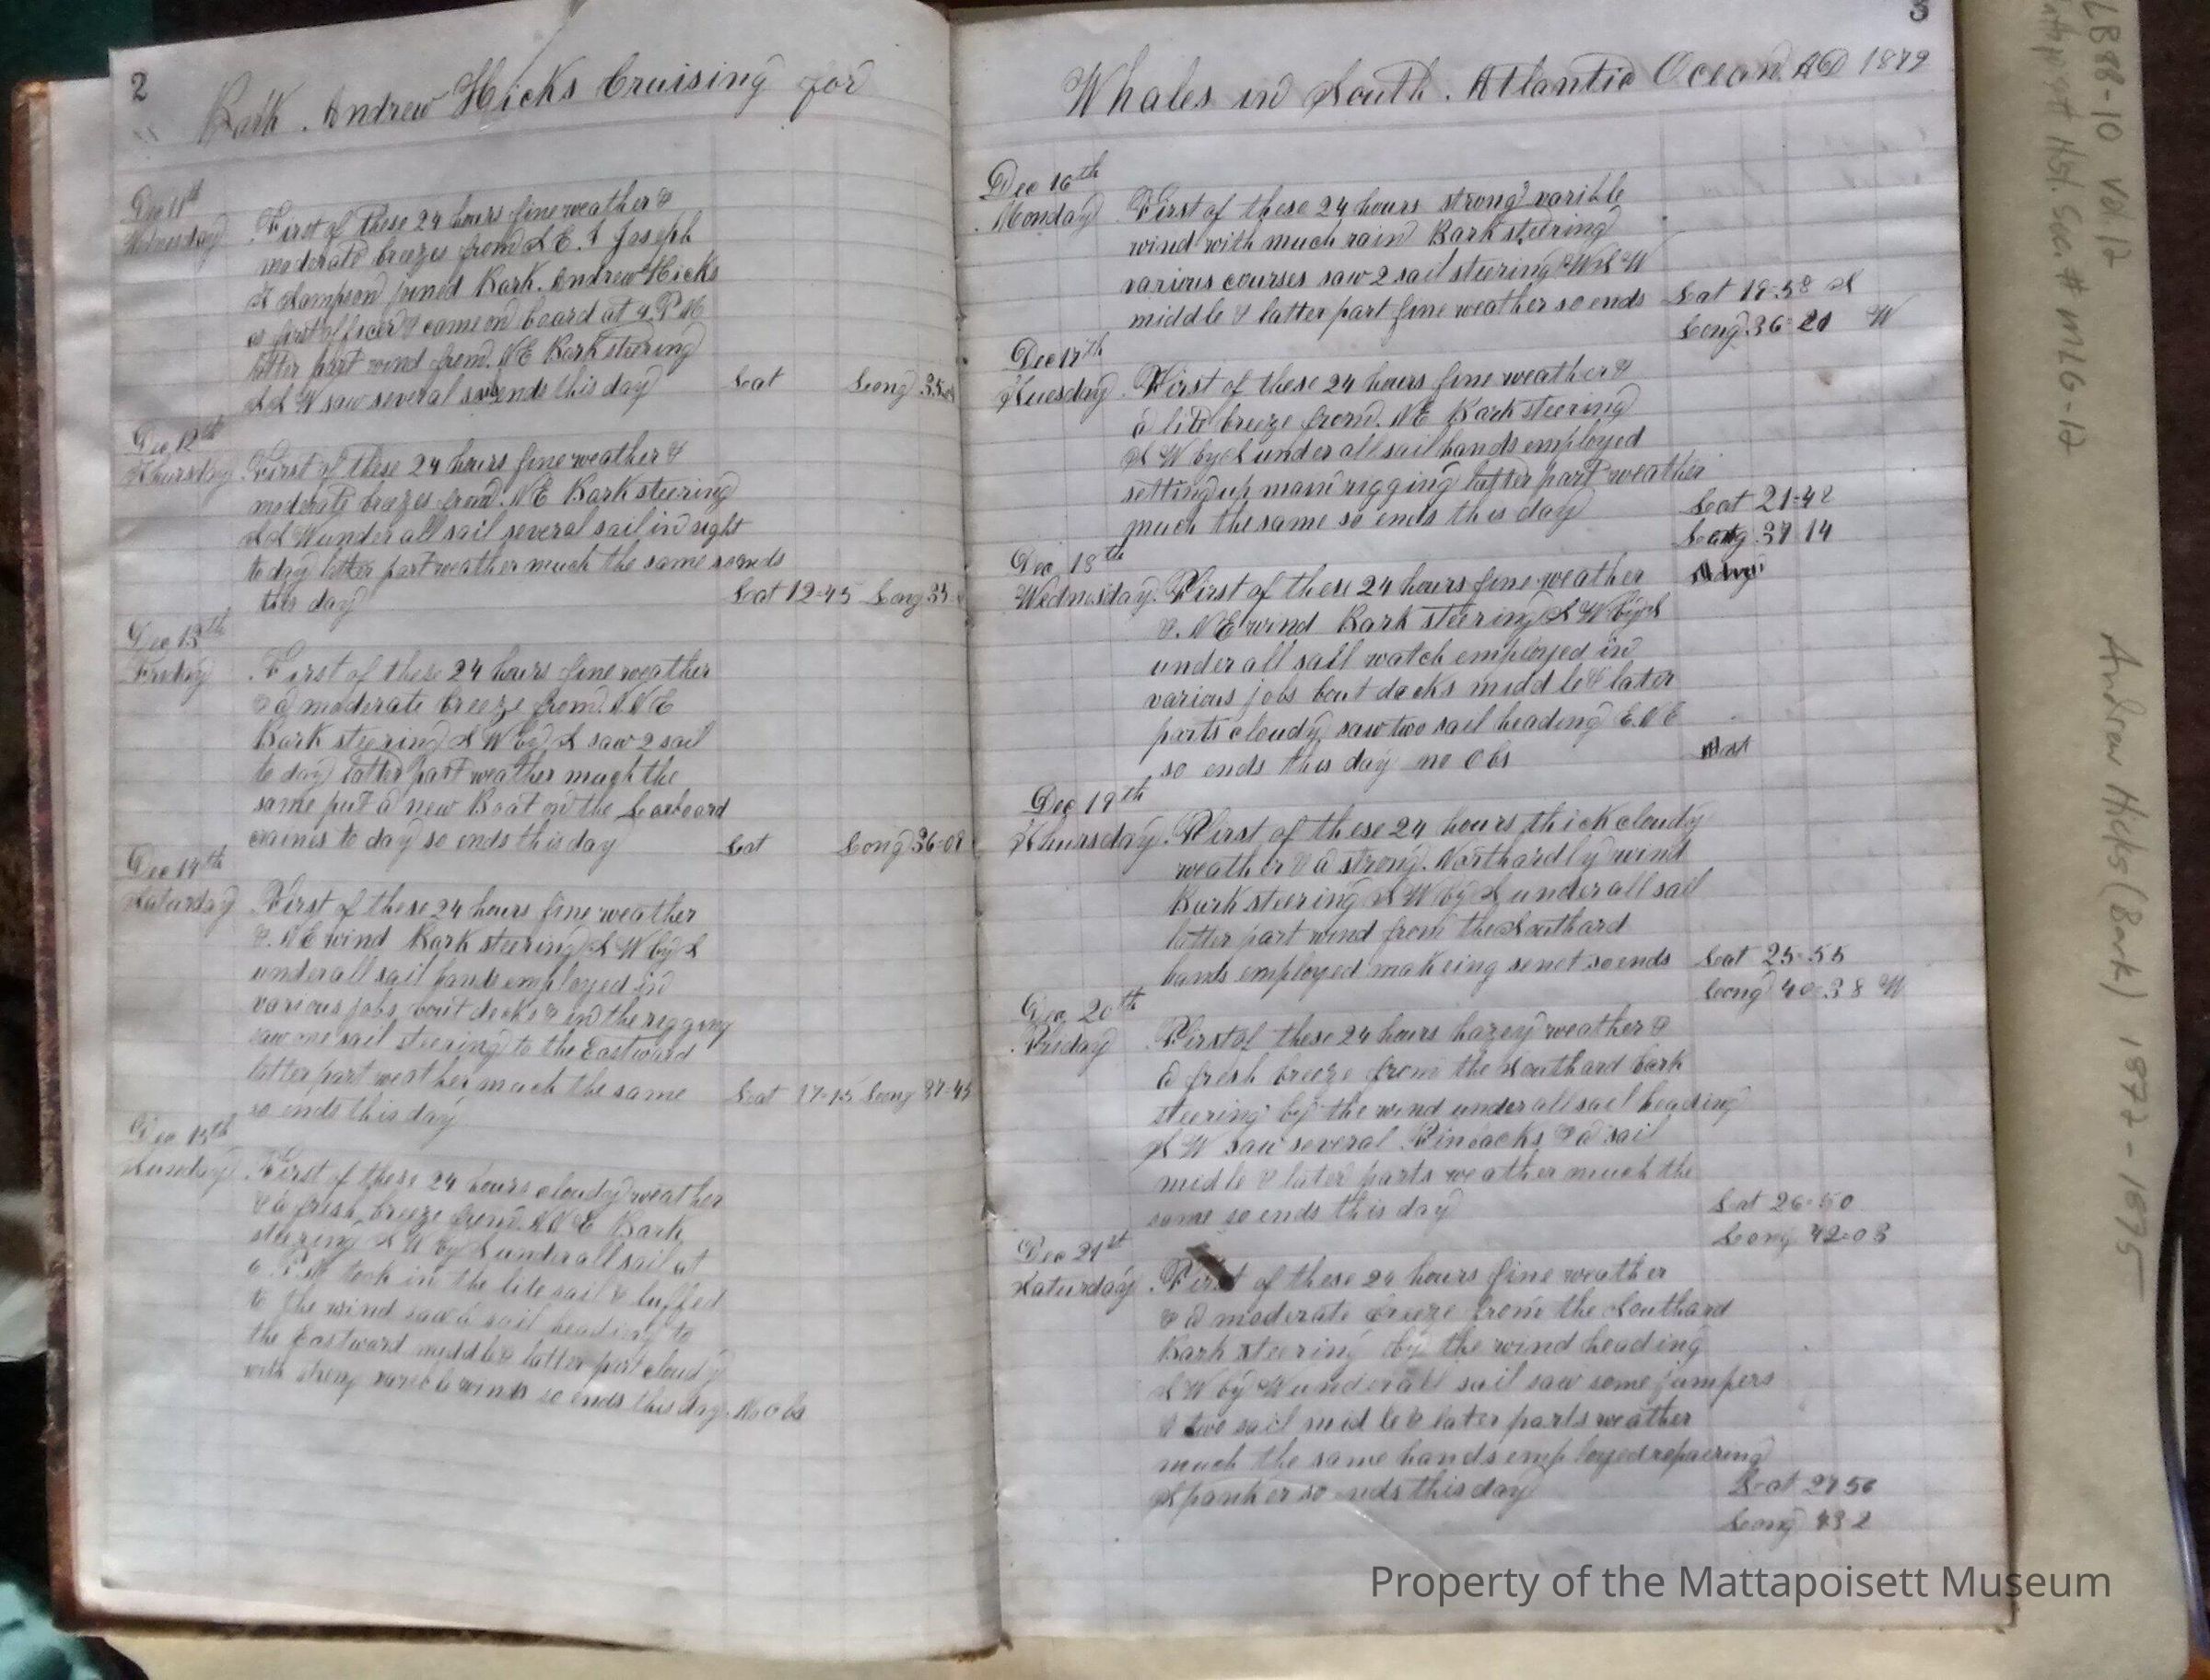 2
Bark Andrew Hicks Cruising for
Dec 11th
Wednesday First of These 24 hours fine weather &
moderate breezes from S E. I Joseph
S Sampson joined Bark. Andrew Hicks
as first officer & came on board at 4. P M
latter part wind from. N E Bark steering
S S W saw several sail so ends this day Lat Long 35
Dec 12th
Thursday First of these 24 hours fine weather &
moderate breezes from. N E Bark steering
S S W under all sail several sail in sight
to day latter part weather much the same so ends
this day Lat 12-45 Long 35
Dec 13th
Friday First of these 24 hours fine weather
& a moderate breeze from. N. N E
Bark steering S W by S saw 2 sail
to day latter part weather much the
same put a new Boat on the Larboard
craines to day so ends this day Lat Long 36-08
Dec 14th
Saturday First of these 24 hours fine weather
&. N E wind Bark steering S W by S
under all sail hands employed in
various jobs bout decks & in the rigging
saw one sail steering to the Eastward
latter part weather much the same Lat 17-15 Long 37-45
so ends this day
Dec 15th
Sunday First of these 24 hours cloudy weather
& a fresh breeze from. N N E Bark
steering S W by S under all sail at
P. M took in the lite sail & luffed
to the wind saw a sail heading to
the Eastward middle & latter part cloudy
with strong varible winds so ends this day. No obs
3
Whales in South. Atlantic Ocean AD 1872
Dec 16th
Monday First of these 24 hours strong varible
wind with much rain Bark steering
various courses saw 2 sail steering W S W
middle & latter part fine weather so ends Lat 19-58 S
Long 36-21 W
Dec 17th
Tuesday First of these 24 hours fine weather &
a lite breeze from. N E Bark steering
S W by S under all sail hands employed
setting up main rigging latter part weather
much the same so ends this day Lat 21-42
Long 37 14
Dec 18th
Wednesday. First of these 24 hours fine weather
&. N E wind Bark steering S W by S
under all sail watch employed in
various jobs bout decks middle & later
parts cloudy saw two sail heading E. N E
so ends this day no Obs
Dec 19th
Thursday. First of these 24 hours thick cloudy
weather & a strong. Northardly wind
Bark steering S W by S under all sail
latter part wind from the Southard
hands employed makeing senet so ends Lat 25-55
Long 40-38 W
Dec 20th
Friday First of these 24 hours hazey weather &
a fresh breeze from the Southard bark
steering by the wind under all sail heading
S W saw several Finbacks & a sail
midle & later parts weather much the
same so ends this day Lat 26-50
Long 42-03
Dec 21st
Saturday First of these 24 hours fine weather
& a moderate breeze from the Southard
Bark steering by the wind heading
S W by W under all sail saw some jumpers
& two sail midle & later parts weather
much the same hands employed repairing
Spanker so ends this day Lat 27 56
Long 43-2
L888-10 Vol. 17
Hist. Soc. # MLG-17
Andrew Hicks (Bark) 1872-1875
Property of the Mattapoisett Museum